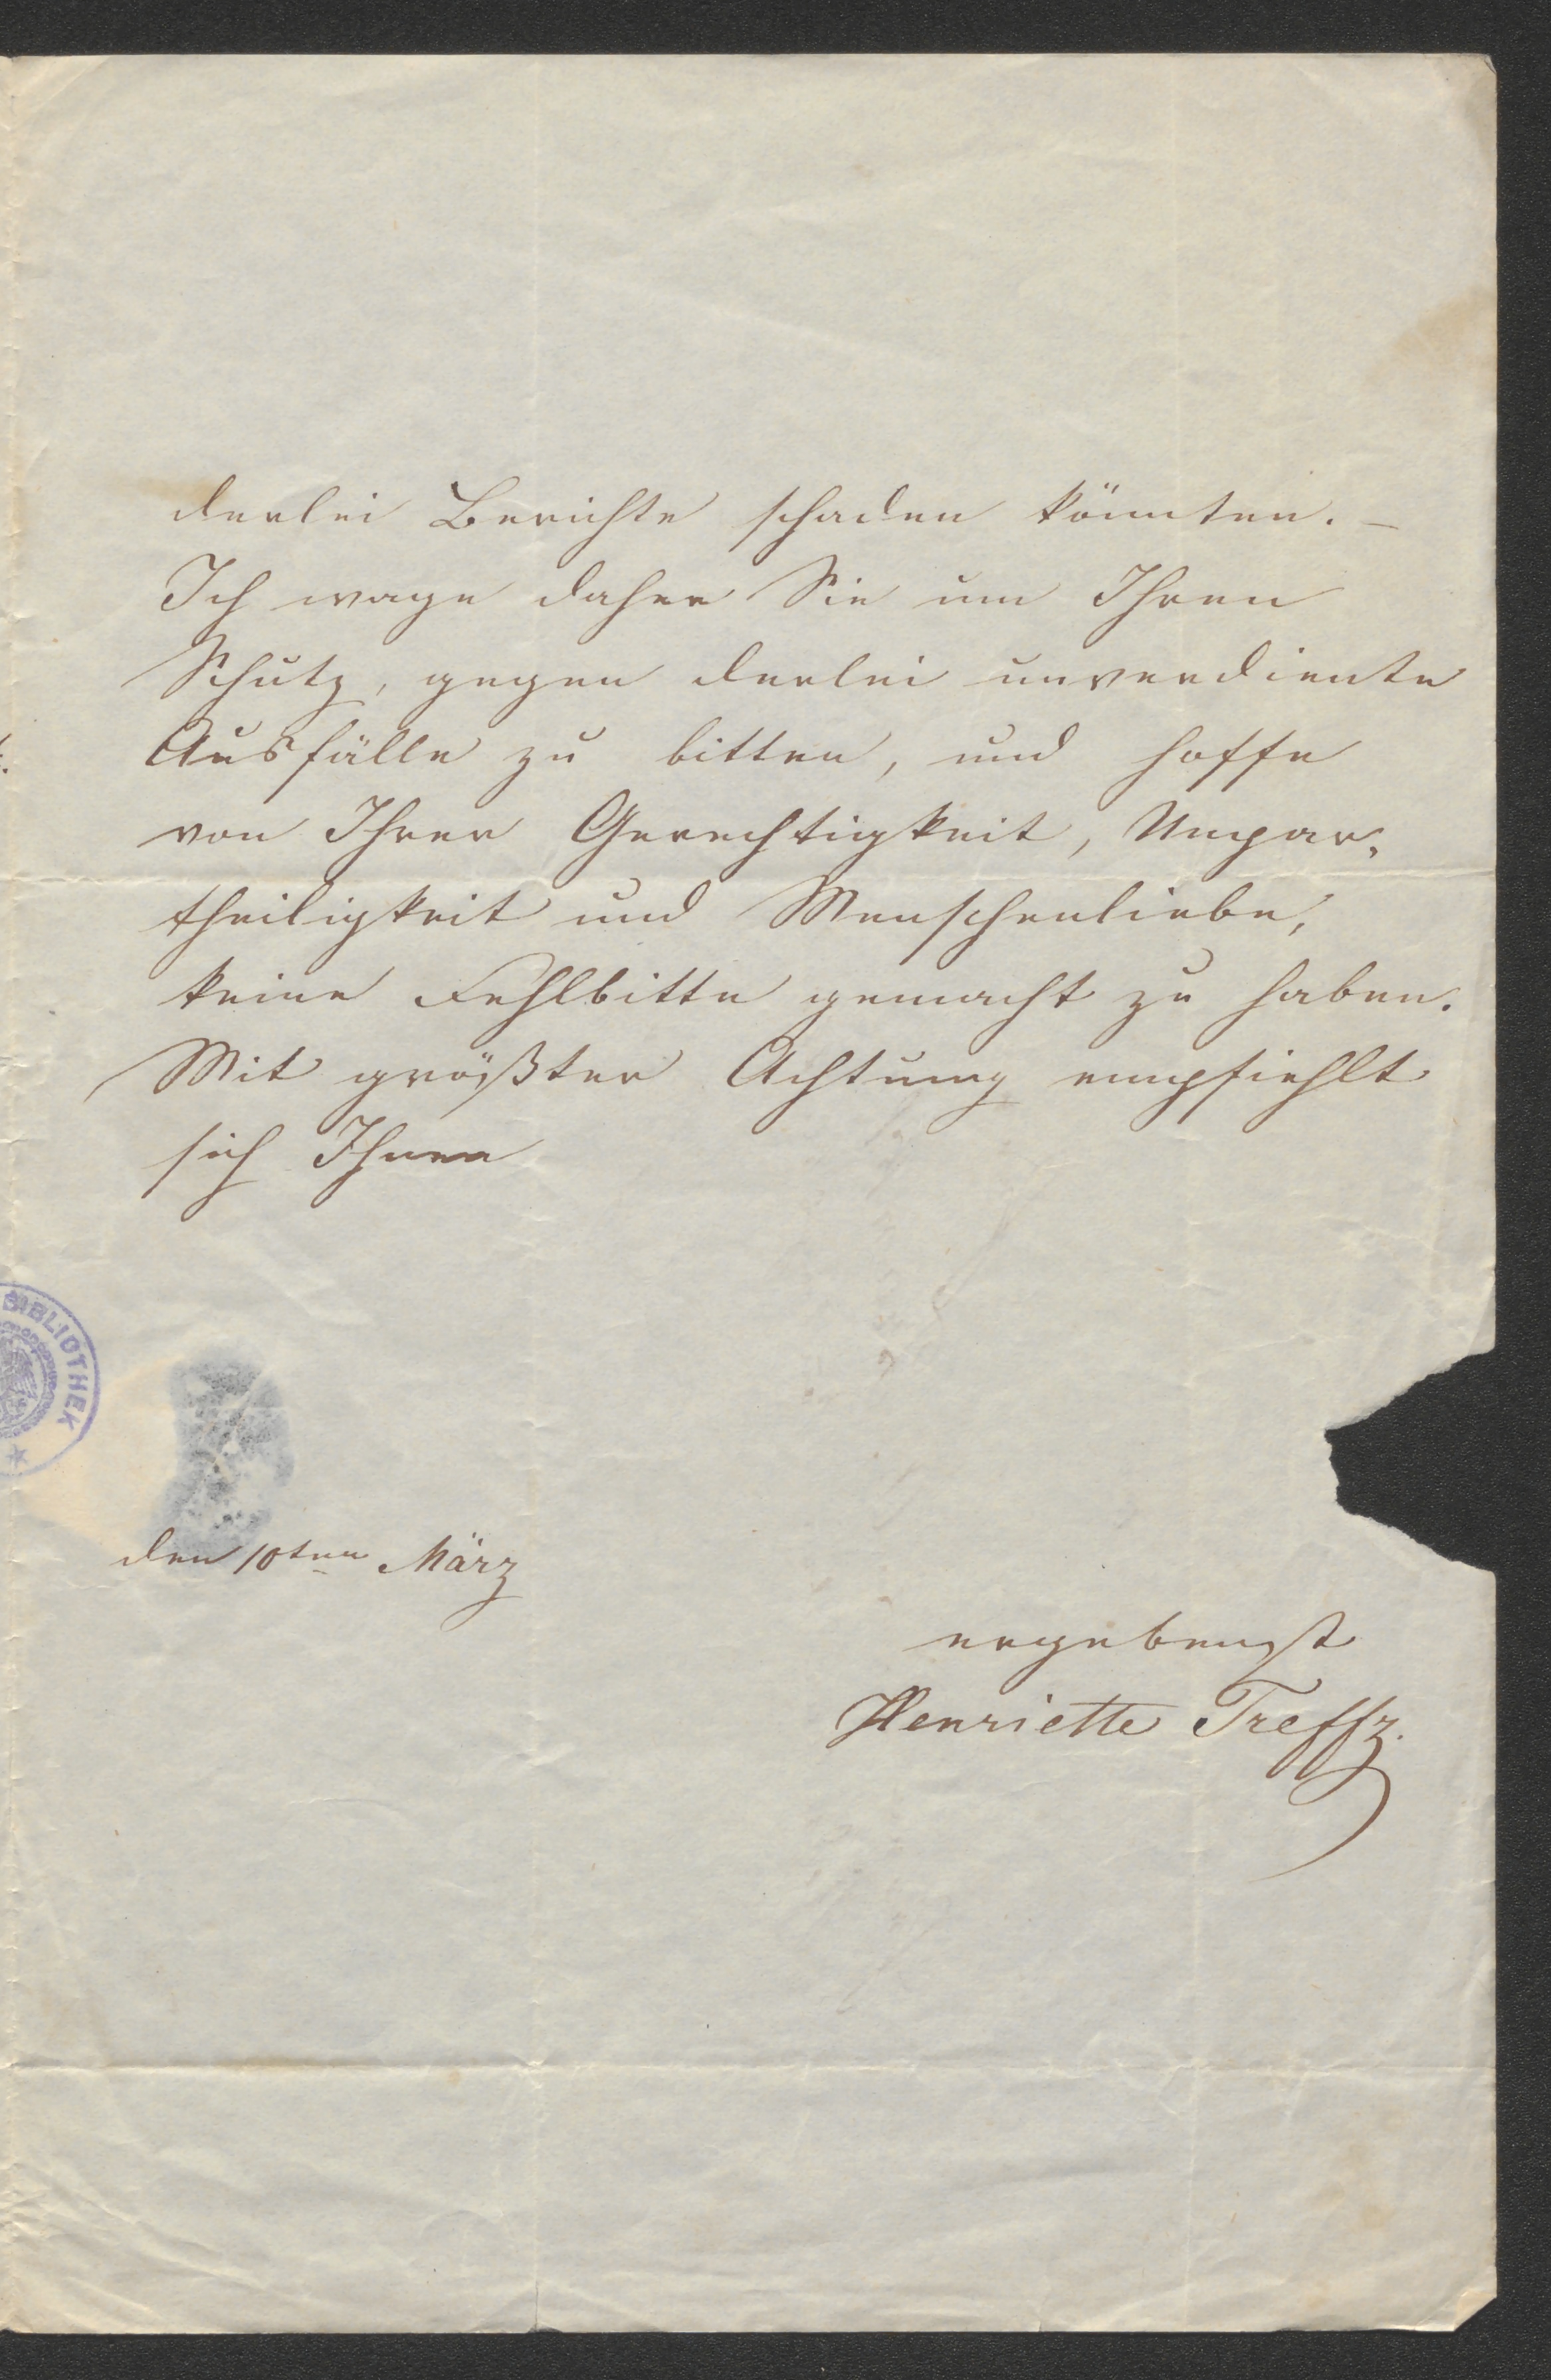 derlei Berichte schaden könnten. –
Ich wage daher Sie um Ihren
Schutz, gegen derlei unverdiente
Ausfälle zu bitten, und hoffe
von Ihrer Gerechtigkeit, Unpar,
theiligkeit und Menschenliebe,
keine Fehlbitte gemacht zu haben.
Mit größter Achtung empfiehlt
sich Ihnen
BIBLIOTHEK
den 10ten März
ergebenst
Henriette Treffz.